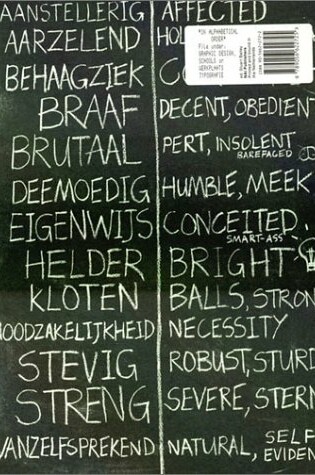 AANSTELLERIG AFFECTED
AARZELEND
BEHAAGZIEK
BRAAF DECENT, OBEDIENT
BRUTAAL PERT, INSOLENT
BAREFACED
DEEMOEDIG HUMBLE, MEEK
EIGENWIJS CONCEITED,
SMART-ASS
HELDER BRIGHT
KLOTEN BALLS, STRON
OODZAKELIJKHEID NECESSITY
STEVIG ROBUST, STURD
STRENG SEVERE, STERN
VANZELFSPREKEND NATURAL, SELF
EVIDEN
"IN ALPHABETICAL
ORDER"
File under:
GRAPHIC DESIGN,
SCHOOLS or
WERKPLAATS
TYPOGRAFIE